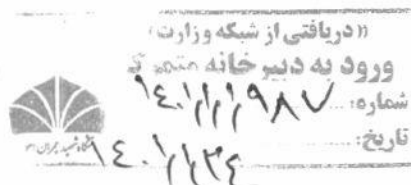 (( دریافتی از شبکه وزارت ))
ورود به دبیرخانه متمرکز
شماره: ۱۴۰۱/۱/۱۹۸۷
تاریخ: ۱۴۰۱/۱/۲۴
دانشگاه شهید چمران اهواز